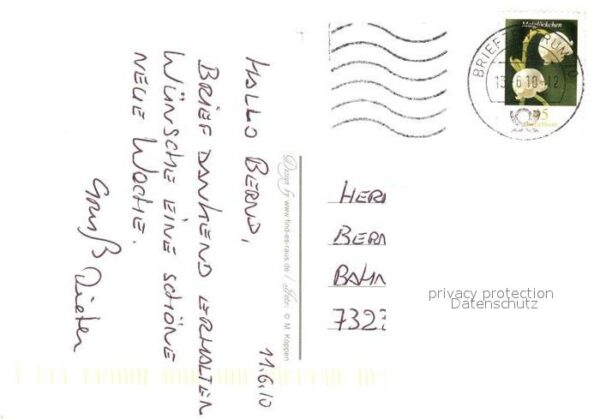 HALLO BERND,
BRIEF DANKEND ERHALTEN
WÜNSCHE EINE SCHÖNE
NEUE WOCHE.
Gruß Dieter
11.6.10
Design by www.find-es-raus.de / Foto: © M. Koppen
Maiglöckchen
BRIEFZENTRUM 10
13.6.10-12
HERR
BERN
BAHN
7323
privacy protection
Datenschutz